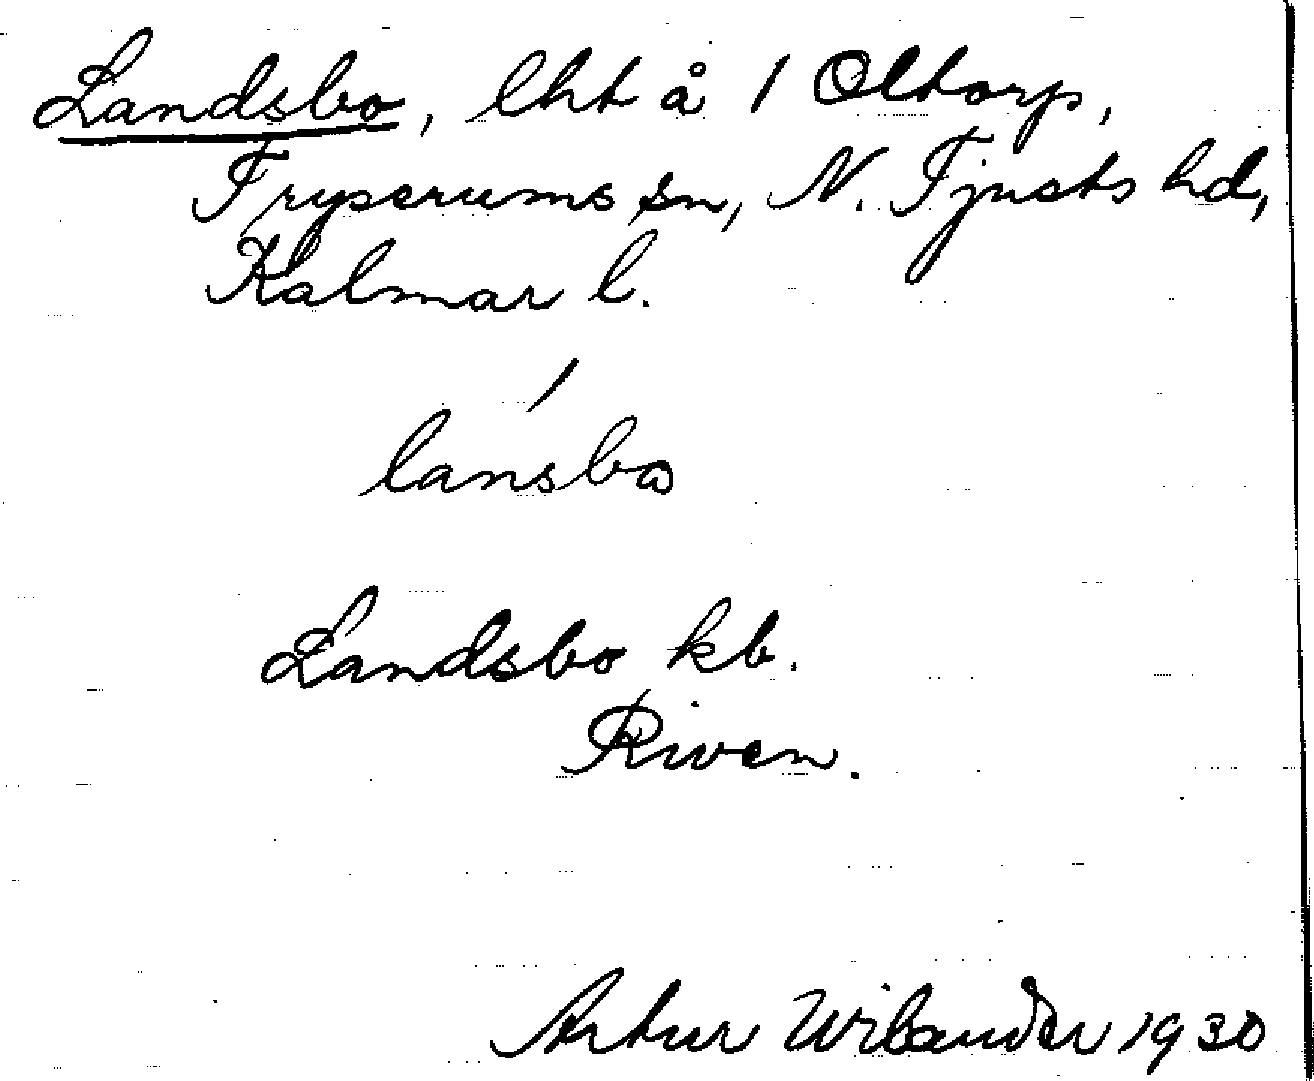 Landsbo, lht å 1 Oltorp,
Tryserums sn, N. Tjusts hd,
Kalmar l.
lánsbo
Landsbo kb.
Riven.
Artur Wilander 1930